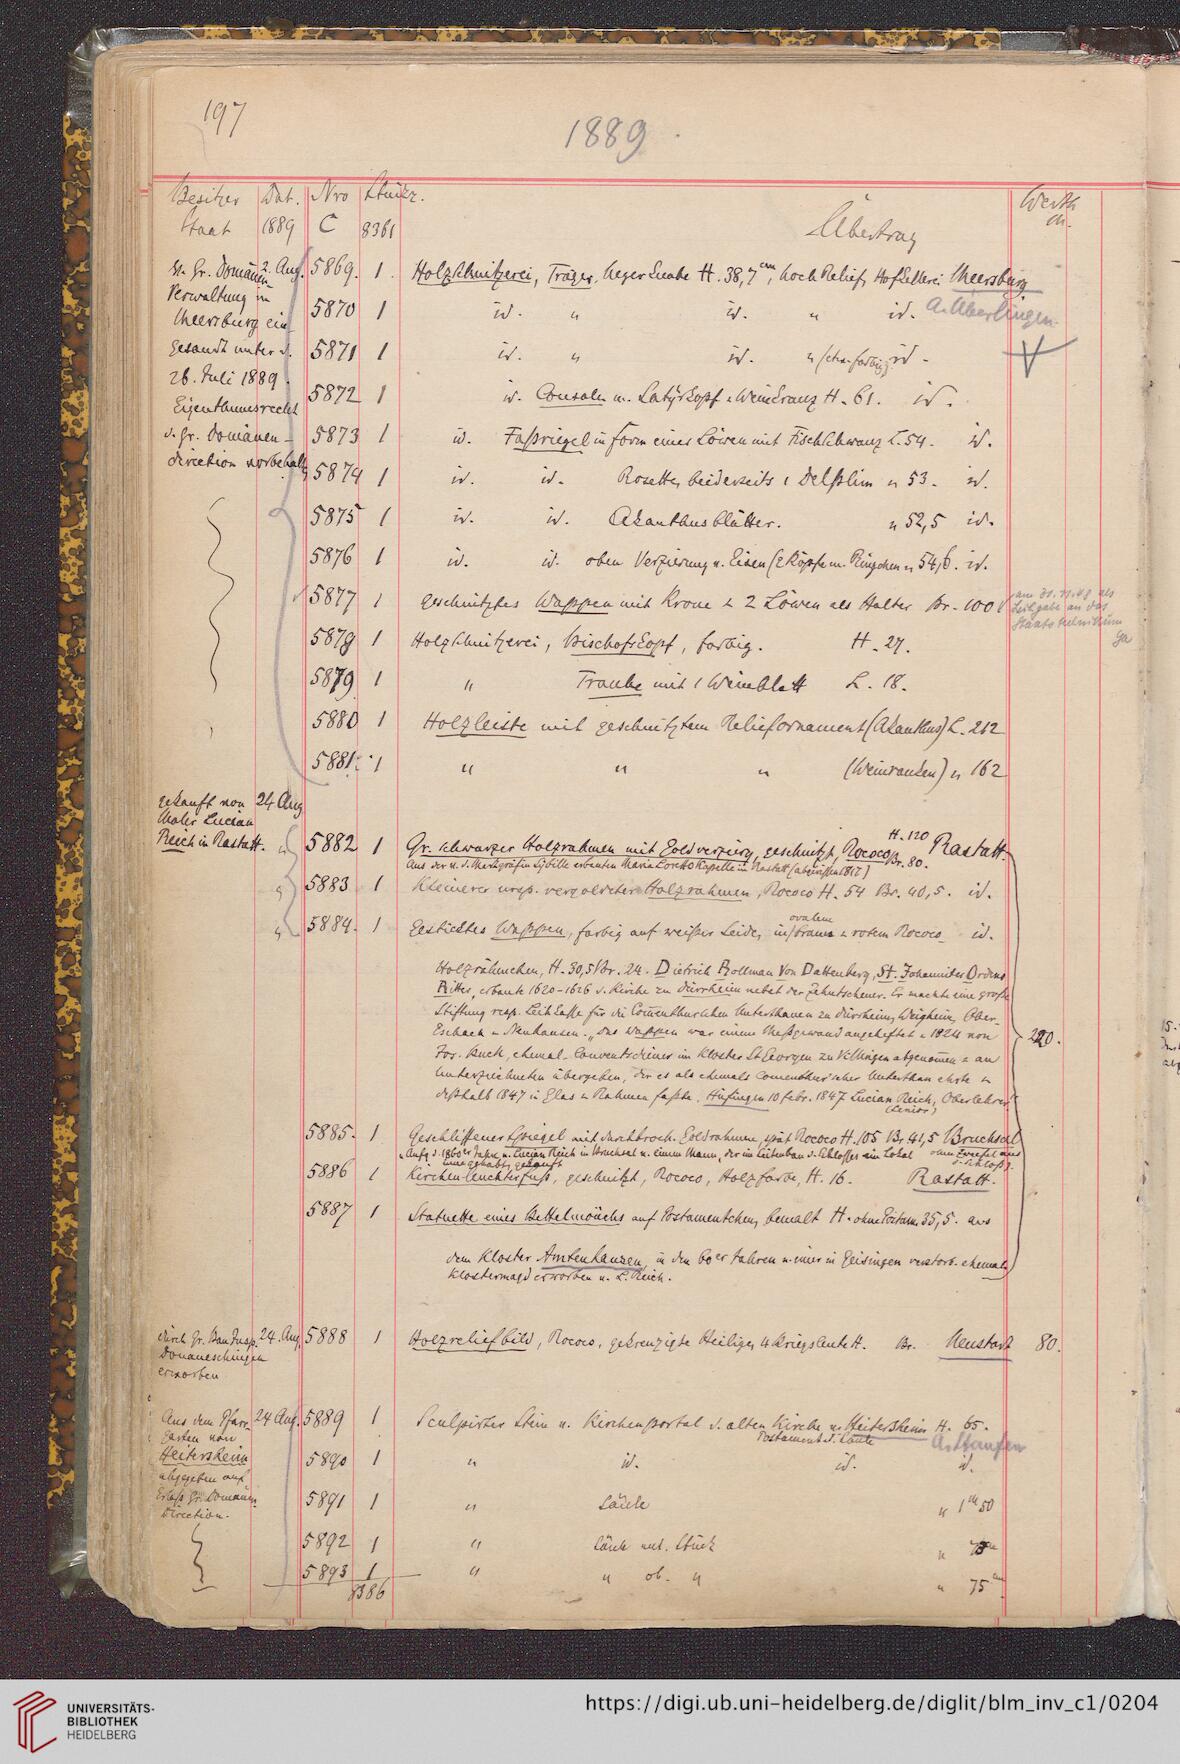 197
1889
Besitzer Dat. Nro Stückz. Werth
Staat 1889 C 8361 Übertrag M.
v. Gr. Domänen 2. Aug. 5869. 1 Holzschnitzerei, Träger, Negerknabe H. 38,7 cm, hoch Relief, Hofkellerei Meersburg
Verwaltung in 5870 1 id. " id. " id. A. Überlingen
Meersburg ein-
gesandt unter d. 5871 1 id. " id. " id.
26. Juli 1889. 5872 1 id. Consolen m. Satyrkopf u Weinkranz H. 61. id.
Eigenthumsrecht
d. Gr. Domänen- 5873 1 id. Faßriegel in Form eines Löwen mit Fischschwanz L. 54. id.
direction vorbehalt. 5874 1 id. id. Rosette, beiderseits 1 Delphin " 53. id.
5875 1 id. id. Akanthusblätter. " 52,5 id.
5876 1 id. id. oben Verzierung v. Eisen (2 Köpfe m. Ringchen " 54,6. id.
5877 1 geschnitztes Wappen mit Krone u 2 Löwen als Halter Br. 100
am 31.11.48 als
Leihgabe an das
Staatstechnikum
5878 1 Holzschnitzerei, Bischofskopf, farbig. H. 27.
5879 1 " Traube mit 1 Weinblatt L. 18.
5880 1 Holzleiste mit geschnitztem Reliefornament (Akanthus) L. 212
5881 1 " " " (Weinranken) " 162
gekauft von 24 Aug
Maler Lucian
Reich in Rastatt. 5882 1 Gr. schwarzer Holzrahmen mit Goldverzierg, geschnitzt, Rococo H. 120 Br. 80. Rastatt.
Aus der v. d. Markgräfin Sybille erbauten Maria Loretto Kapelle in Rastatt (abgerissen 18
5883 1 Kleinerer urspr. vergoldeter Holzrahmen, Rococo H. 54 Br. 40,5. id.
5884. 1 Gesticktes Wappen, farbig auf weißer Seide, in ovalem u rotem Rococo- id.
Holzrähmchen, H. 30,5 Br. 24. Dietrich Rollman Von Dattenberg, St. Johanniter Ordens
Ritter, erbaute 1620-1626 d. Kirche zu Dürrheim nebst der Zehntscheuer. Er machte eine große
Stiftung resp. Leihkasse für die Commenthurlichen Unterthanen zu Dürrheim, Weigheim, Ober-
Eschach u Neuhausen. „Das Wappen war einem Meßgewand angeheftet u 1824 von 220.
Jos. Kuch, ehemal. Conventschreiner im Kloster St Georgen zu Villingen abgenommen u an
Unterzeichneten übergeben, der es als ehemals Commenthur'scher Unterthan ehrte u
deßhalb 1847 in Glas u Rahmen faßte. Hüfingen 10 Febr. 1847 Lucian Reich, Oberlehrer"
(senior)
5885. 1 Geschliffener Spiegel mit durchbroch. Goldrahmen, spät Rococo H. 105 Br. 41,5 Bruchsal
Anfg d. 1860er Jahre v. Lucian Reich in Bruchsal v. einem Mann, der im Seitenbau d. Schlosses ein Lokal ohne Zweifel aus
inne gehabt, gekauft d. Schloß.
5886 1 Kirchen-leuchterfuß, geschnitzt, Rococo, Holzfarbe, H. 16. Rastatt.
5887 1 Statuette eines Bettelmönchs auf Postamentchen, bemalt H. ohne Postam. 35,5. aus
dem Kloster Amtenhausen, in den 60er Jahren v. einer in Geisingen verstorb. ehemal.
Klostermagd erworben v. L. Reich.
durch Gr. Bau Insp. 24. Aug. 5888 1 Holzreliefbild, Rococo, gekreuzigte Heilige, 4 Kriegsleute H. Br. Neustadt 80.
Donaueschingen
erworben
Aus dem Pfarr- 24 Aug. 5889 1 Sculpirter Stein v. Kirchenportal d. alten Kirche v. Heitersheim H. 65.
garten von Postament d. Säule A. Staufen
Heitersheim 5890 1 " id. id. id.
abgegeben auf
Erlaß Gr. Domän. 5891 1 " Säule " 1 m 50
Direction.
5892 1 " Säule unt. Stück " 75
5893 1 " " ob. " " 75 cm
8386
UNIVERSITÄTS-
BIBLIOTHEK
HEIDELBERG
https://digi.ub.uni-heidelberg.de/diglit/blm_inv_c1/0204